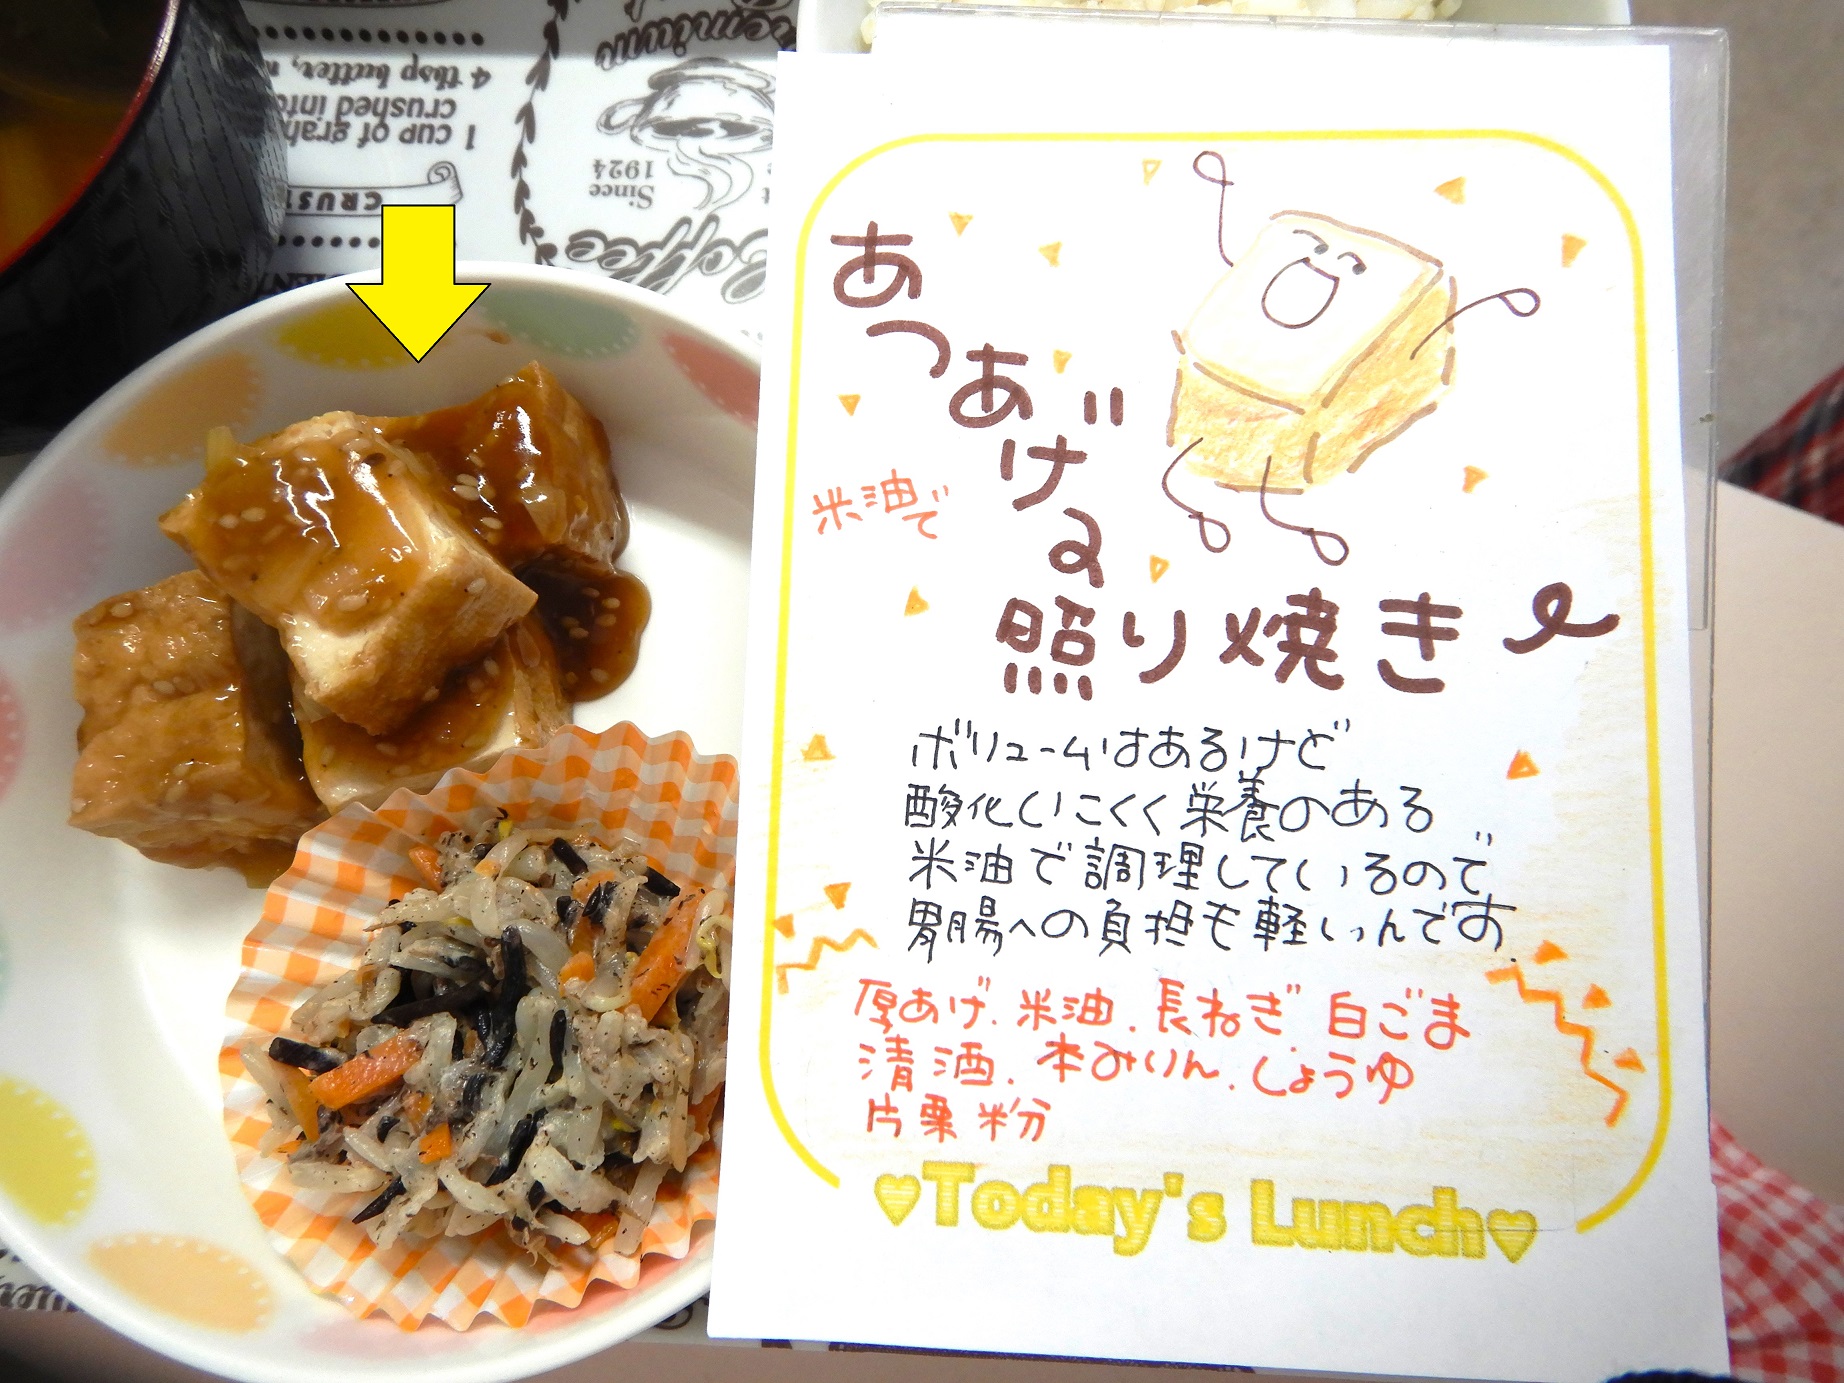 あつあげの
米油で
照り焼き
ボリュームはあるけど
酸化しにくく栄養のある
米油で調理しているので
胃腸への負担も軽いんです
厚あげ.米油.長ねぎ.白ごま
清酒.本みりん.しょうゆ
片栗粉
♥Today's Lunch♥
4 tbsp butter,
crushed into
1 cup of grah
CRUST
Since
1924
Coffee